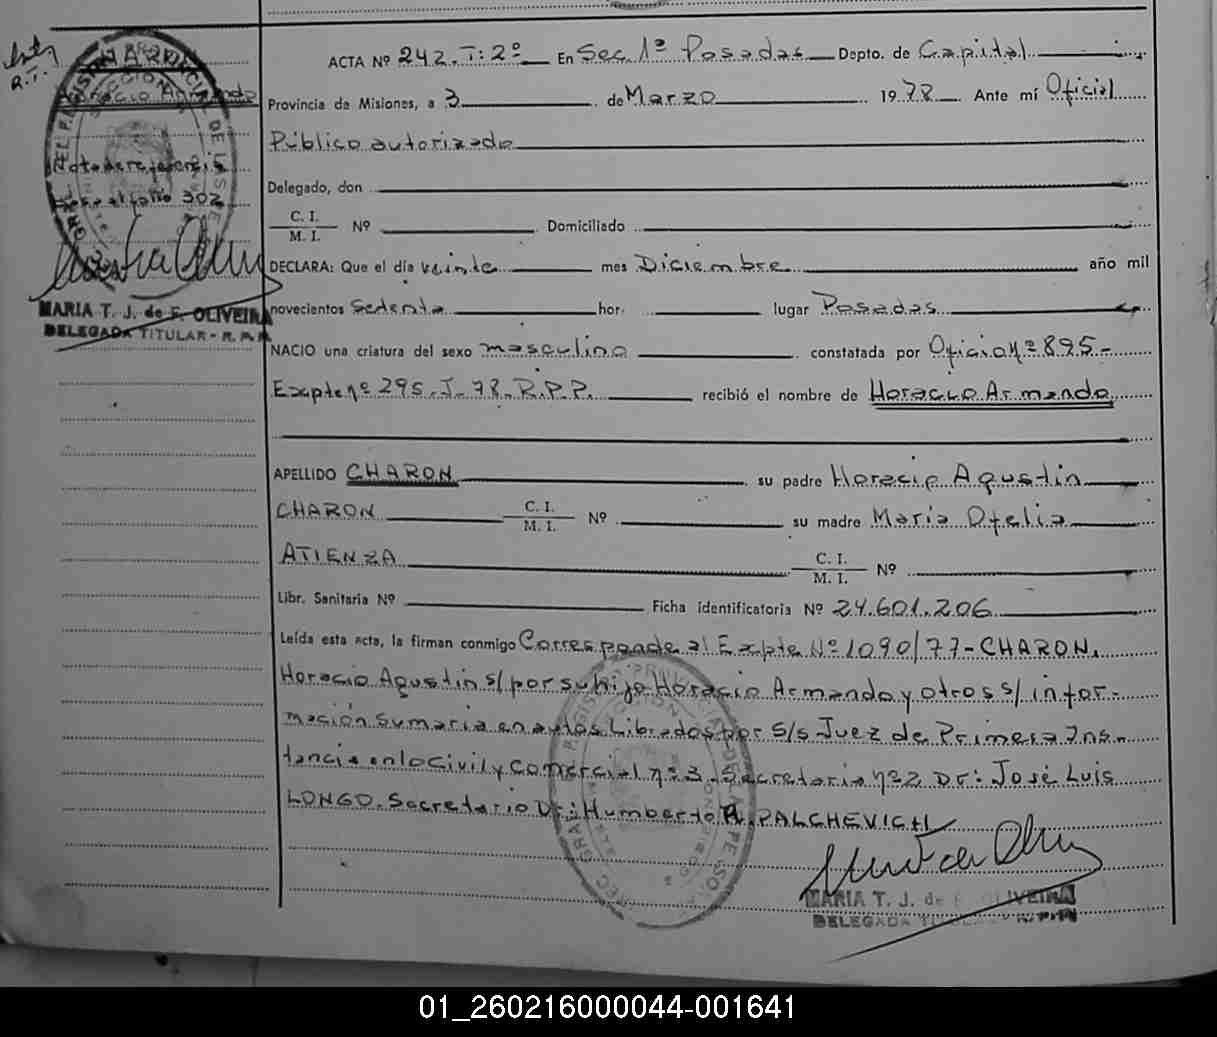 ACTA Nº 242. T: 2º En Sec. 1ª Posadas Depto. de Capital
Provincia de Misiones, a 3 de Marzo 1978 Ante mí Oficial
Público autorizado
Delegado, don
C. I.
M. I. Nº Domiciliado
DECLARA: Que el día veinte mes Diciembre año mil
novecientos Setenta hor. lugar Posadas
NACIO una criatura del sexo masculino constatada por Oficio Nº 895-
Expte nº 295. J. 78. R.P.P. recibió el nombre de Horacio Armando
APELLIDO CHARON su padre Horacio Agustin
CHARON C. I. M. I. Nº su madre Maria Ofelia
ATIENZA C. I. M. I. Nº
Libr. Sanitaria Nº Ficha identificatoria Nº 24.601.206
Leída esta acta, la firman conmigo Corresponde al Expte Nº 1090/77-CHARON.
Horacio Agustin s/ por su hijo Horacio Armando y otros s/ infor-
mación Sumaria en autos Librados por s/s Juez de Primera Ins-
tancia en lo Civil y Comercial nº 3. Secretaria nº 2 Dr: José Luis
LONGO. Secretario Dr: Humberto A. PALCHEVICH
MARIA T. J. de F. OLIVEIRA
DELEGADA TITULAR
CHARON
Horacio Armando
Nota de referencia
al folio 302
MARIA T. J. de F. OLIVEIRA
DELEGADA TITULAR - R. P. P.
01_260216000044-001641